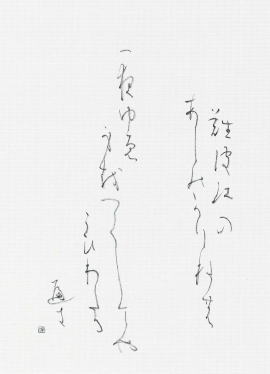 難波江の
あしのかりねの
一夜ゆゑ
身越つくしてや
こひわたる
遍き